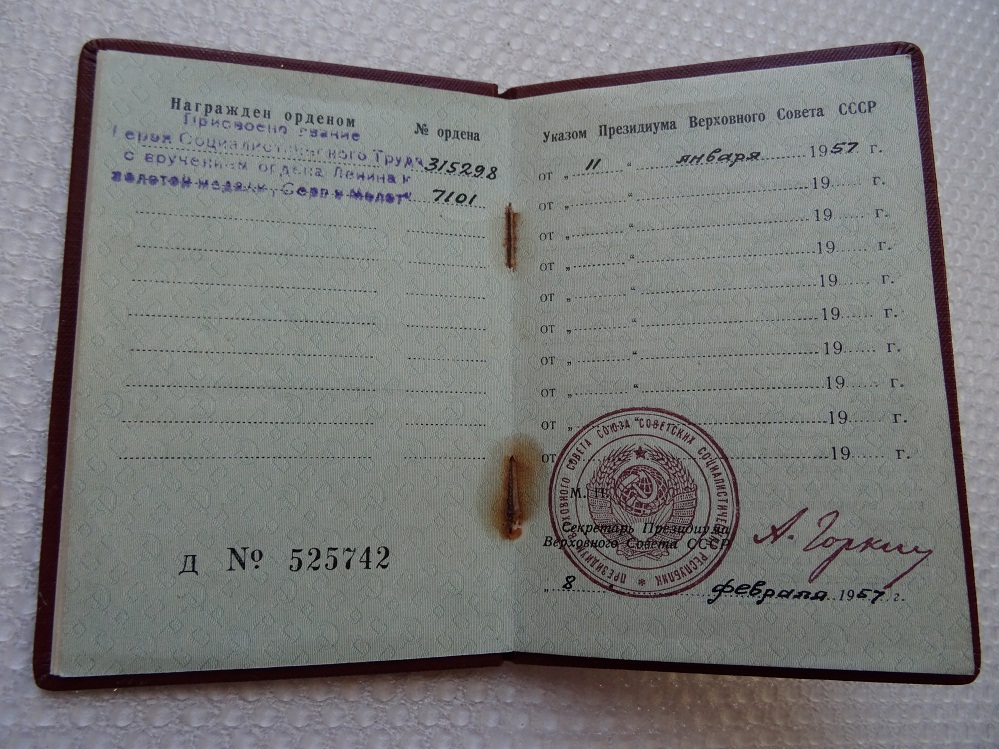 Награжден орденом
№ ордена
Присвоено звание
Героя Социалистического Труда
315298
с вручением ордена Ленина и
золотой медали „Серп и Молот“
7101
Д № 525742
Указом Президиума Верховного Совета СССР
от „ 11 “ января 1957 г.
от „ “ 19 г.
от „ “ 19 г.
от „ “ 19 г.
от „ “ 19 г.
от „ “ 19 г.
от „ “ 19 г.
от „ “ 19 г.
от „ “ 19 г.
от 19 г.
ПРЕЗИДИУМ ВЕРХОВНОГО СОВЕТА СОЮЗА СОВЕТСКИХ СОЦИАЛИСТИЧЕСКИХ РЕСПУБЛИК
М. П.
Секретарь Президиума
Верховного Совета СССР
А. Горкин
„ 8 “ февраля 1957 г.